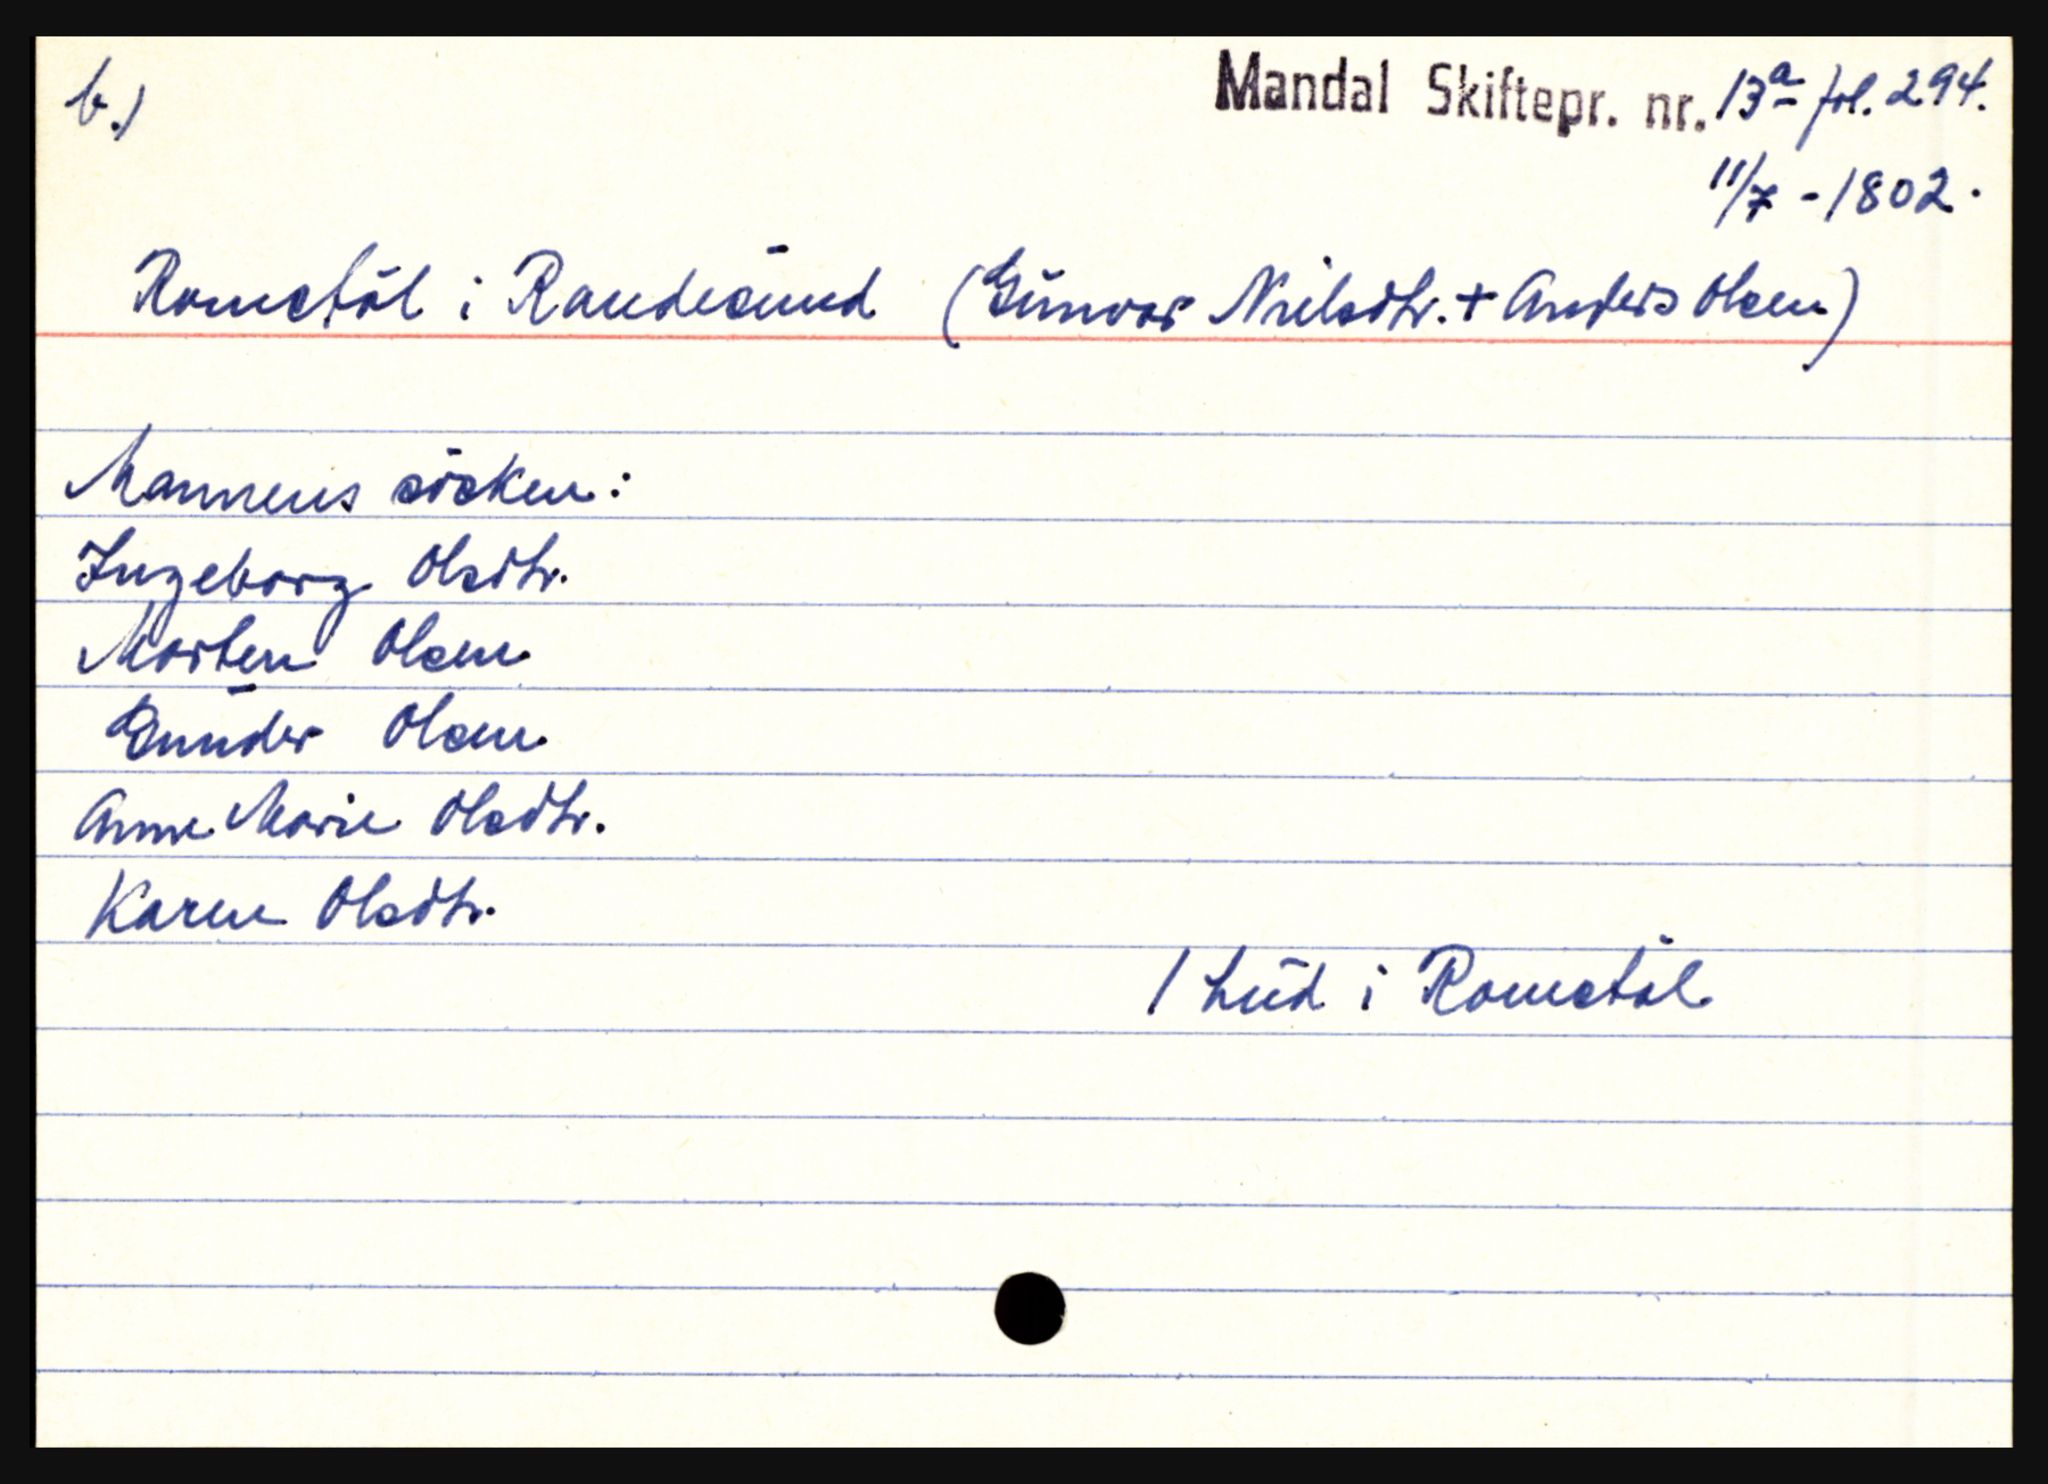 b.)
Mandal Skiftepr. nr. 13a fol. 294.
11/7 - 1802.
Romstöl i Randesund (Gunvor Nielsdtr. + Anders Olsen)
Mannens søsken:
Ingeborg Olsdtr.
Morten Olsen
Gunder Olsen
Anne Marie Olsdtr.
Karen Olsdtr.
1 hud i Romstöl